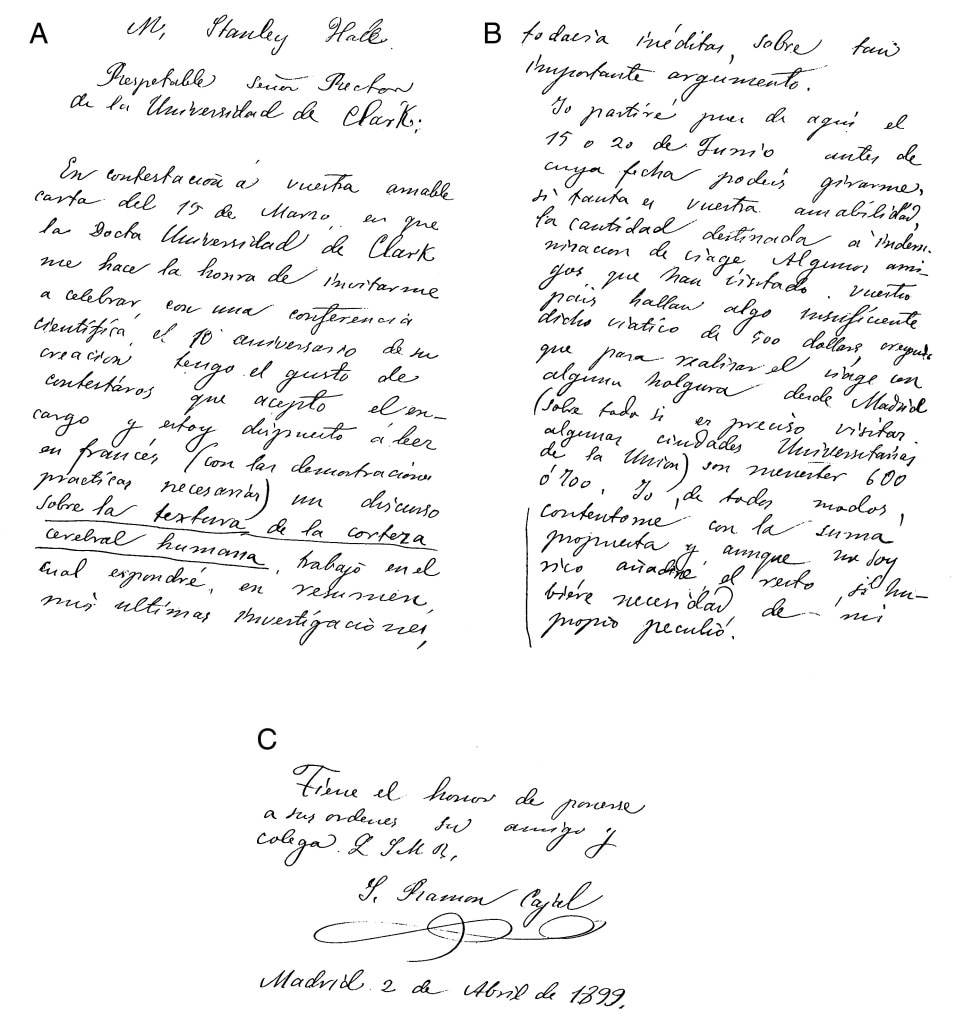 A
M, Stanley Hall.
Respetable Señor Rector
de la Universidad de Clark:
En contestación á vuestra amable
carta del 15 de Marzo, en que
la Docta Universidad de Clark
me hace la honra de invitarme
a celebrar, con una conferencia
científica, el 10 aniversario de su
creacion tengo el gusto de
contestáros que acepto el en-
cargo y estoy dispuesto á leer
en francés (con las demostraciones
practicas necesarias) un discurso
sobre la textura de la corteza
cerebral humana, trabajo en el
cual expondré, en resumen,
mis ultimas investigaciones,
B
todavia inéditas, sobre tan
importante argumento.
Yo partiré pues de aqui el
15 o 20 de Junio antes de
cuya fecha podeis girarme,
si tanta es vuestra amabilidad,
la cantidad destinada a indem-
nizacion de viage Algunos ami-
gos que han visitado vuestro
pais hallan algo insuficiente
dicho viatico de 500 dollars, creyendo
que para realizar el viage con
alguna holgura desde Madrid
(sobre todo si es preciso visitar
algunas ciudades Universitarias
de la Union) son menester 600
ó 700. Yo, de todos modos,
contentome con la suma
propuesta y aunque no soy
rico añadiré el resto, si hu-
biére necesidad de mi
propio peculió.
C
Tiene el honor de ponerse
a sus ordenes su amigo y
colega. Q S M B,
S. Ramon Cajal
Madrid 2 de Abril de 1899.